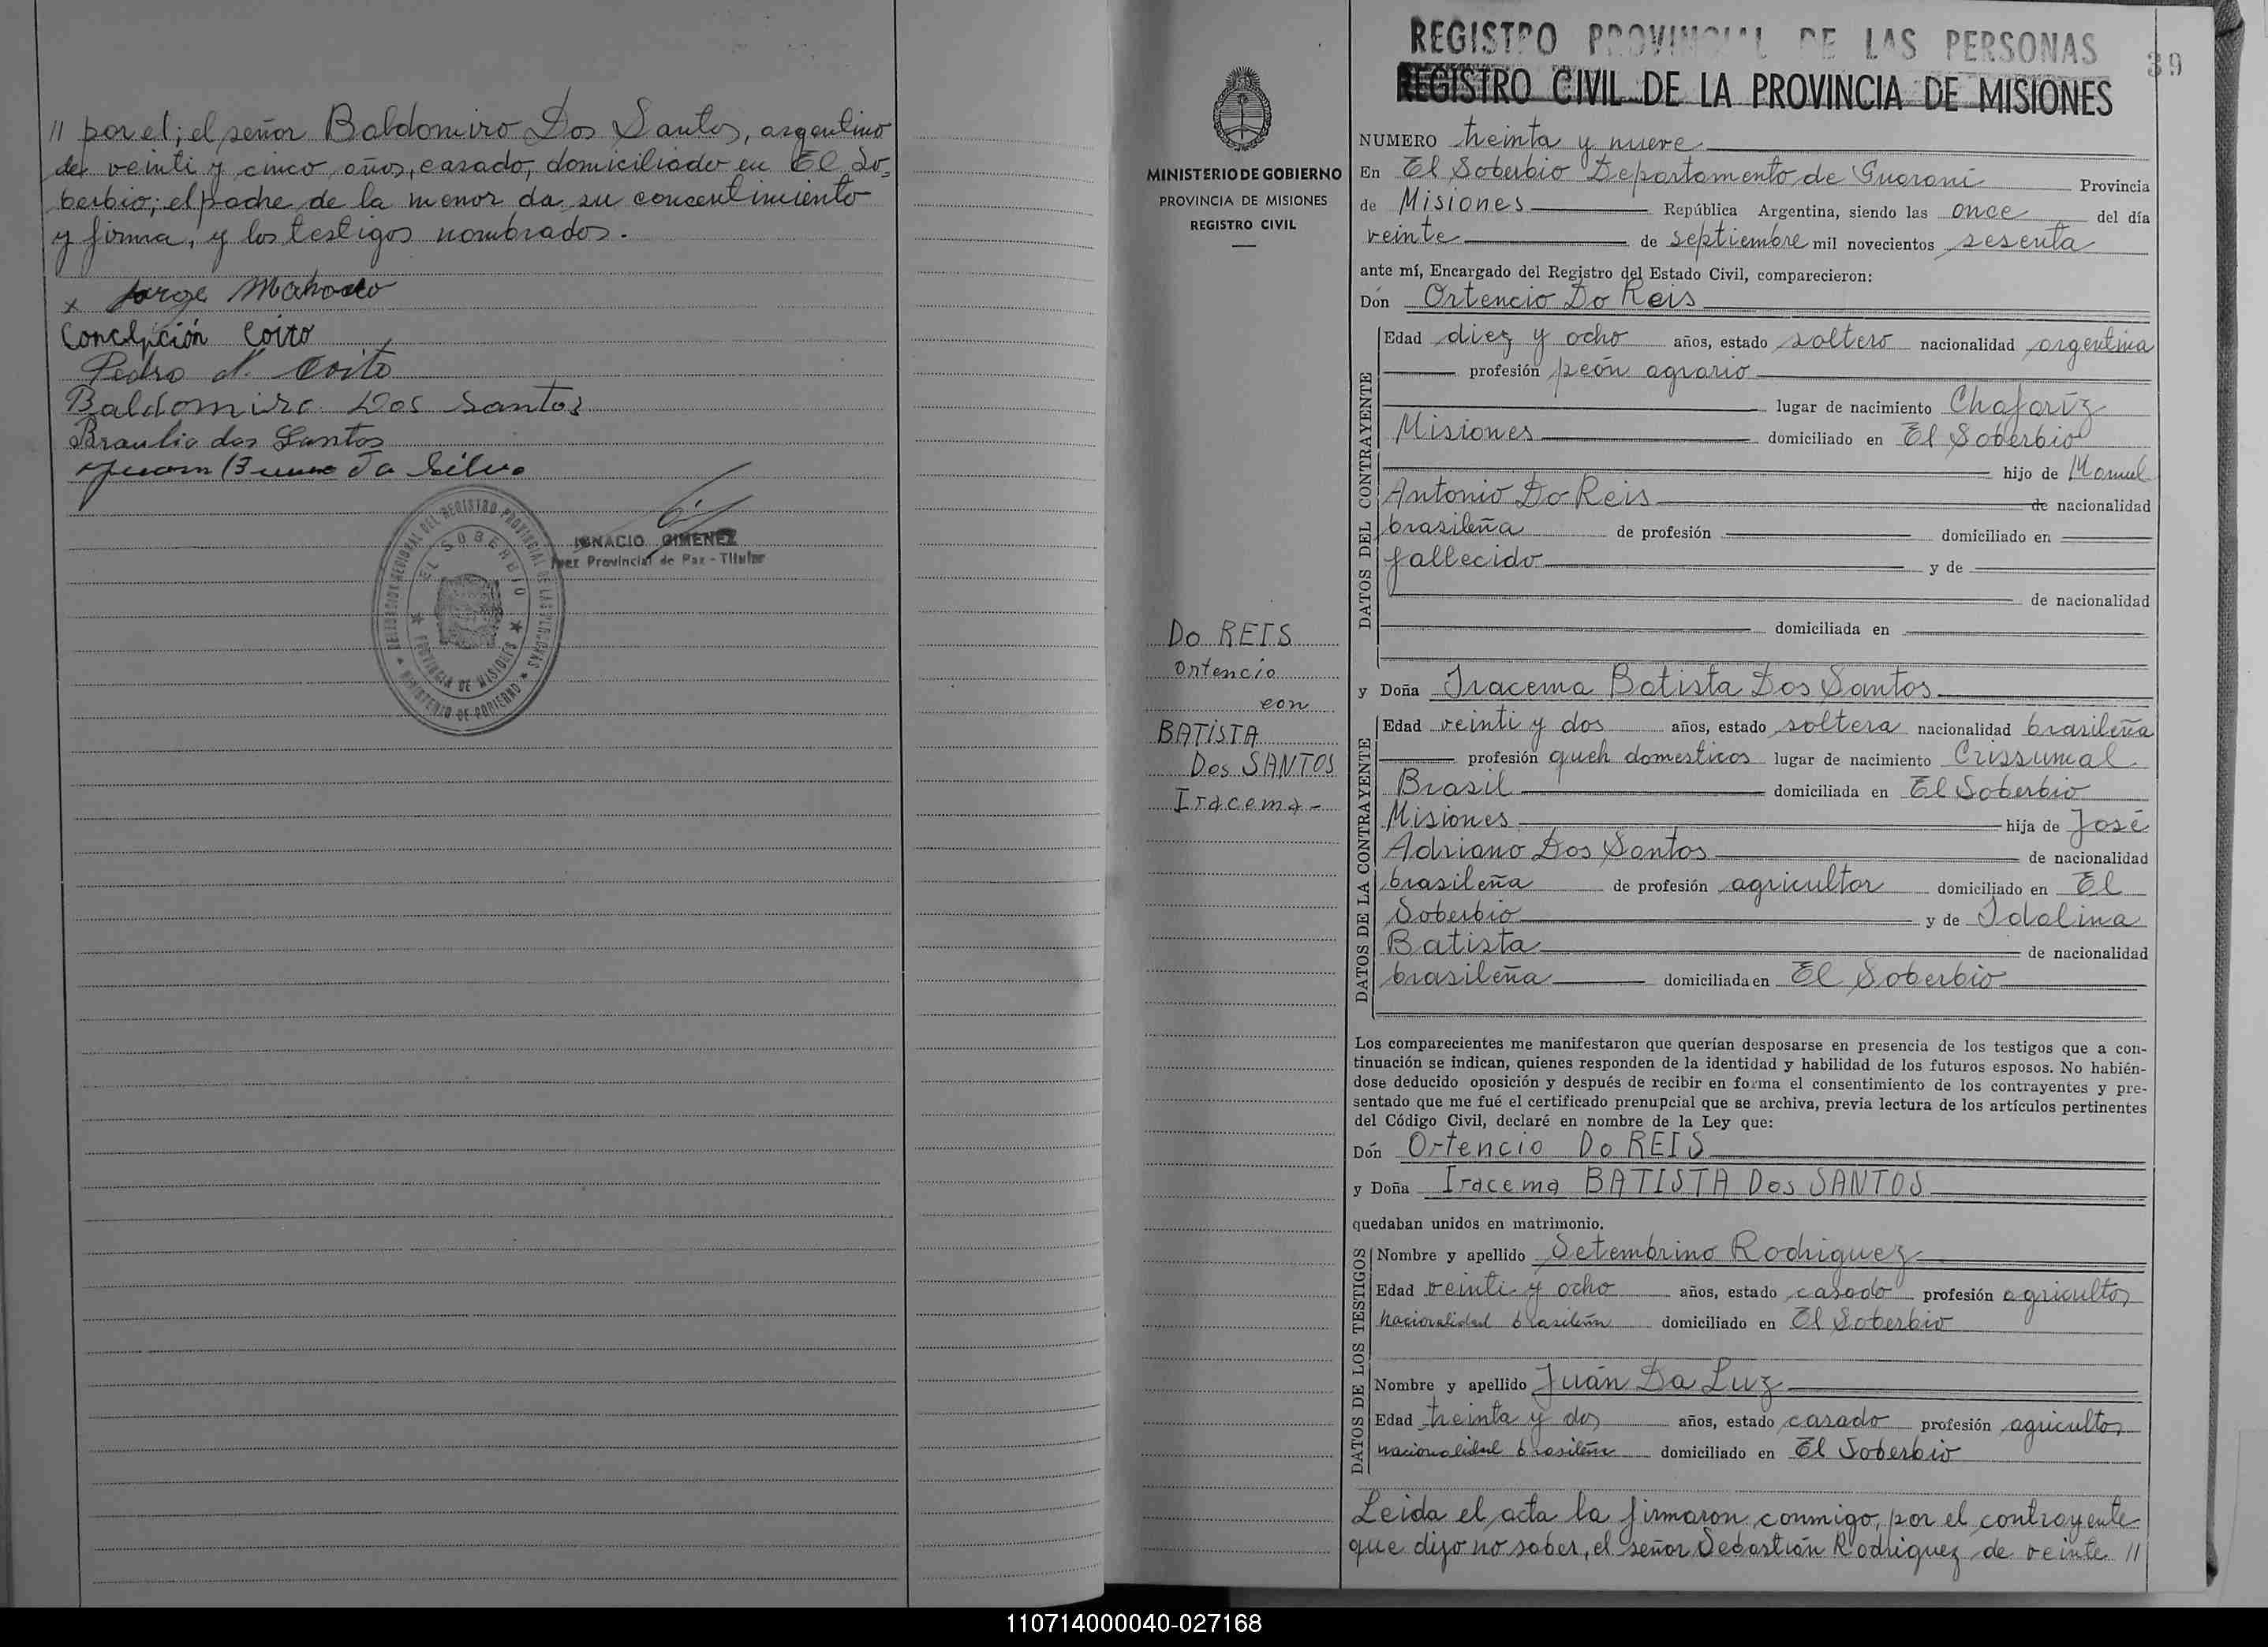 // por el; el señor Baldomiro Dos Santos, argentino
de veinti y cinco años, casado, domiciliado en El So=
berbio; el padre de la menor da su concentimiento
y firma, y los testigos nombrados.
x Jorge Machado
Concepción Coito
Pedro d. Coito
Baldomiro Dos Santos
Braulio dos Santos
Juan Da Silva
DELEGACION REGIONAL DEL REGISTRO PROVINCIAL DE LAS PERSONAS
EL SOBERBIO
PROVINCIA DE MISIONES
MINISTERIO DE GOBIERNO
IGNACIO GIMENEZ
Juez Provincial de Paz - Titular
MINISTERIO DE GOBIERNO
PROVINCIA DE MISIONES
REGISTRO CIVIL
Do REIS
Ortencio
con
BATISTA
Dos SANTOS
Iracema-
REGISTRO PROVINCIAL DE LAS PERSONAS
39
REGISTRO CIVIL DE LA PROVINCIA DE MISIONES
NUMERO treinta y nueve
En El Soberbio Departamento de Guaraní Provincia
de Misiones República Argentina, siendo las once del día
veinte de septiembre mil novecientos sesenta
ante mí, Encargado del Registro del Estado Civil, comparecieron:
Dón Ortencio Do Reis
DATOS DEL CONTRAYENTE
Edad diez y ocho años, estado soltero nacionalidad argentina
profesión peón agrario
lugar de nacimiento Chafaríz
Misiones domiciliado en El Soberbio
hijo de Manuel
Antonio Do Reis de nacionalidad
brasileña de profesión domiciliado en
fallecido y de
de nacionalidad
domiciliada en
y Doña Iracema Batista Dos Santos
DATOS DE LA CONTRAYENTE
Edad veinti y dos años, estado soltera nacionalidad brasileña
profesión queh domesticos lugar de nacimiento Crissumal
Brasil domiciliada en El Soberbio
Misiones hija de José
Adriano Dos Santos de nacionalidad
brasileña de profesión agricultor domiciliado en El
Soberbio y de Idalina
Batista de nacionalidad
brasileña domiciliada en El Soberbio
Los comparecientes me manifestaron que querían desposarse en presencia de los testigos que a con-
tinuación se indican, quienes responden de la identidad y habilidad de los futuros esposos. No habién-
dose deducido oposición y después de recibir en forma el consentimiento de los contrayentes y pre-
sentado que me fué el certificado prenupcial que se archiva, previa lectura de los artículos pertinentes
del Código Civil, declaré en nombre de la Ley que:
Dón Ortencio Do REIS
y Doña Iracema BATISTA Dos SANTOS
quedaban unidos en matrimonio.
DATOS DE LOS TESTIGOS
Nombre y apellido Setembrino Rodriguez
Edad veinti y ocho años, estado casado profesión agricultor
nacionalidad brasileña domiciliado en El Soberbio
Nombre y apellido Juán Da Luz
Edad treinta y dos años, estado casado profesión agricultor
nacionalidad brasileña domiciliado en El Soberbio
Leida el acta la firmaron conmigo, por el contrayente
que dijo no saber, el señor Sebastián Rodriguez de veinte //
110714000040-027168